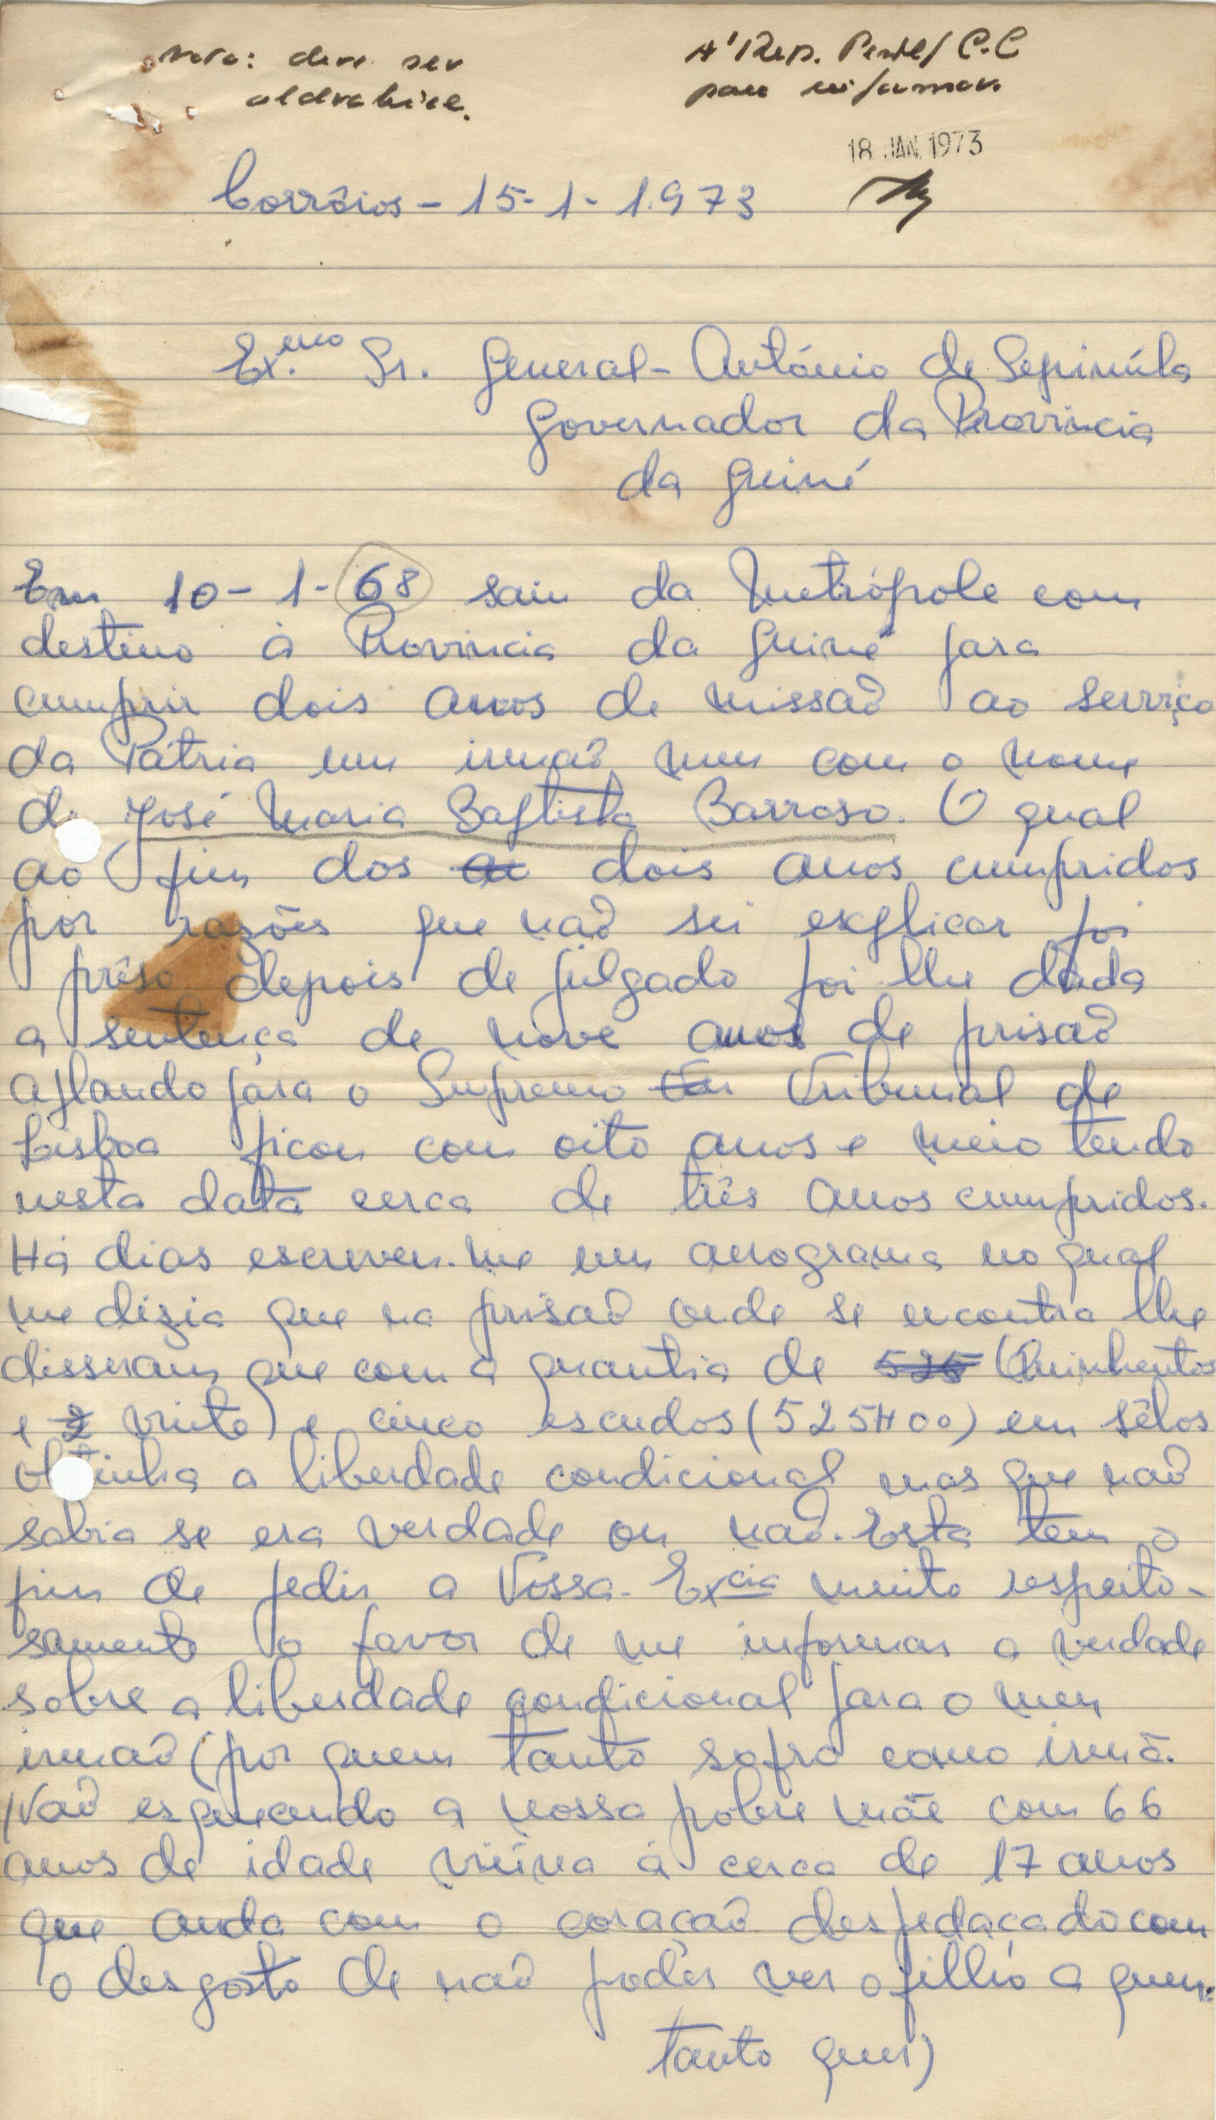 Nota: deve ser
aldrabice.
A' Rep. Pess/ C.C
para informar.
18 JAN. 1973
Corrôios - 15-1-1.973
Ex.mo Sr. General - António de Sepinúla
Governador da Provincia
da Guiné
Em 10-1-68 saiu da Metrópole com
destino à Provincia da Guiné para
cumprir dois anos de missaõ ao serviço
da Pátria um irmaõ meu com o nome
de José Maria Baptista Barroso. O qual
ao fim dos dois anos cumpridos
por razões que naõ sei explicar foi
prêso depois de julgado foi lhe dada
a sentença de nove anos de prisaõ
aplando para o Supremo Tribunal de
Lisboa ficou com oito anos e meio tendo
nesta data cerca de três anos cumpridos.
Há dias escreveu-me um arograma no qual
me dizia que na prisaõ onde se encontra lhe
disseram que com a quantia de 525 (Quinhentos
e vinte) e cinco escudos (525H00) em sêlos
obtinha a liberdade condicional mas que naõ
sabia se era verdade ou naõ. Esta tem o
fim de pedir a Vossa. Excia muito respeito-
samente o favor de me informar a verdade
sobre a liberdade condicional para o meu
irmaõ (por quem tanto sofro como irmã.
Naõ esquecendo a nossa pobre mãe com 66
anos de idade viúva à cerca de 17 anos
que anda com o coraçaõ despedaçado com
o desgosto de naõ podêr ver o filho a quem
tanto quer)